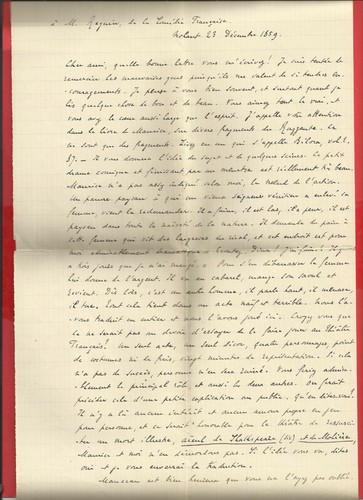 à M. Regnier, de la Comédie Française.
Nohant 23 Décembre 1859.
Cher ami, quelle bonne lettre vous m'écrivez! Je suis tentée de
remercier les mauvaises gens puisqu'ils me valent de si tendres en-
couragements. Je pense à vous bien souvent, et surtout quand je
lis quelque chose de bon et de beau. Vous aimez tant le vrai, et
vous avez le cœur aussi large que l'esprit. J'appelle votre attention
dans le livre de Maurice, sur divers fragments du Ruzzante. Ce
ne sont que des fragments. Lisez en un qui s'appelle Bilora, vol. 2,
Il vous donnera l'idée du sujet et de quelques scènes. Le petit
drame comique et finissant par un meurtre est réellement très beau.
Maurice n'a pas assez indiqué selon moi, le nœud de l'action.
Un pauvre paysan à qui un vieux seigneur vénitien a enlevé sa
femme, vient la redemander. Il a faim, il est las, il a peur, il est
paysan dans toute la naïveté de la nature. Il demande du pain à
cette femme qui vit des largesses du rival, et cet endroit est pour
moi Dieu! j'ai faim! Il y
a trois jours que je n'ai mangé. Pour s'en débarrasser la femme
lui donne de l'argent. Il va au cabaret, mange son saoul et
revient. Dès lors, c'est un autre homme, il parle haut, il menace,
il tue. Tout cela tient dans un acte naïf et terrible. Nous l'a-
vons traduit en entier et nous l'avons joué ici. Croyez vous que
ce ne serait pas un devoir d'essayer de le faire jouer au Théâtre
Français? Un seul acte, un seul décor, quatre personnages, point
de costumes ni de frais, vingt minutes de représentation. Si cela
n'a pas de succès, personne n'en sera ruiné. Vous feriez admira-
blement le principal rôle et aussi les deux autres. On ferait
précéder cela d'une petite explication au public. Qu'en dites-vous?
Il n'y a là aucun intérêt et aucun amour propre en jeu
pour personne, et ce serait honorable pour le théâtre de ressusci-
ter un mort illustre, aïeul de Shakespeare (sic) et de Molière,
Maurice et moi n'en démordons pas. Si l'idée vous va, dites
oui et je vous enverrai la traduction.
Manceau est bien heureux que vous ne l'ayez pas oublié